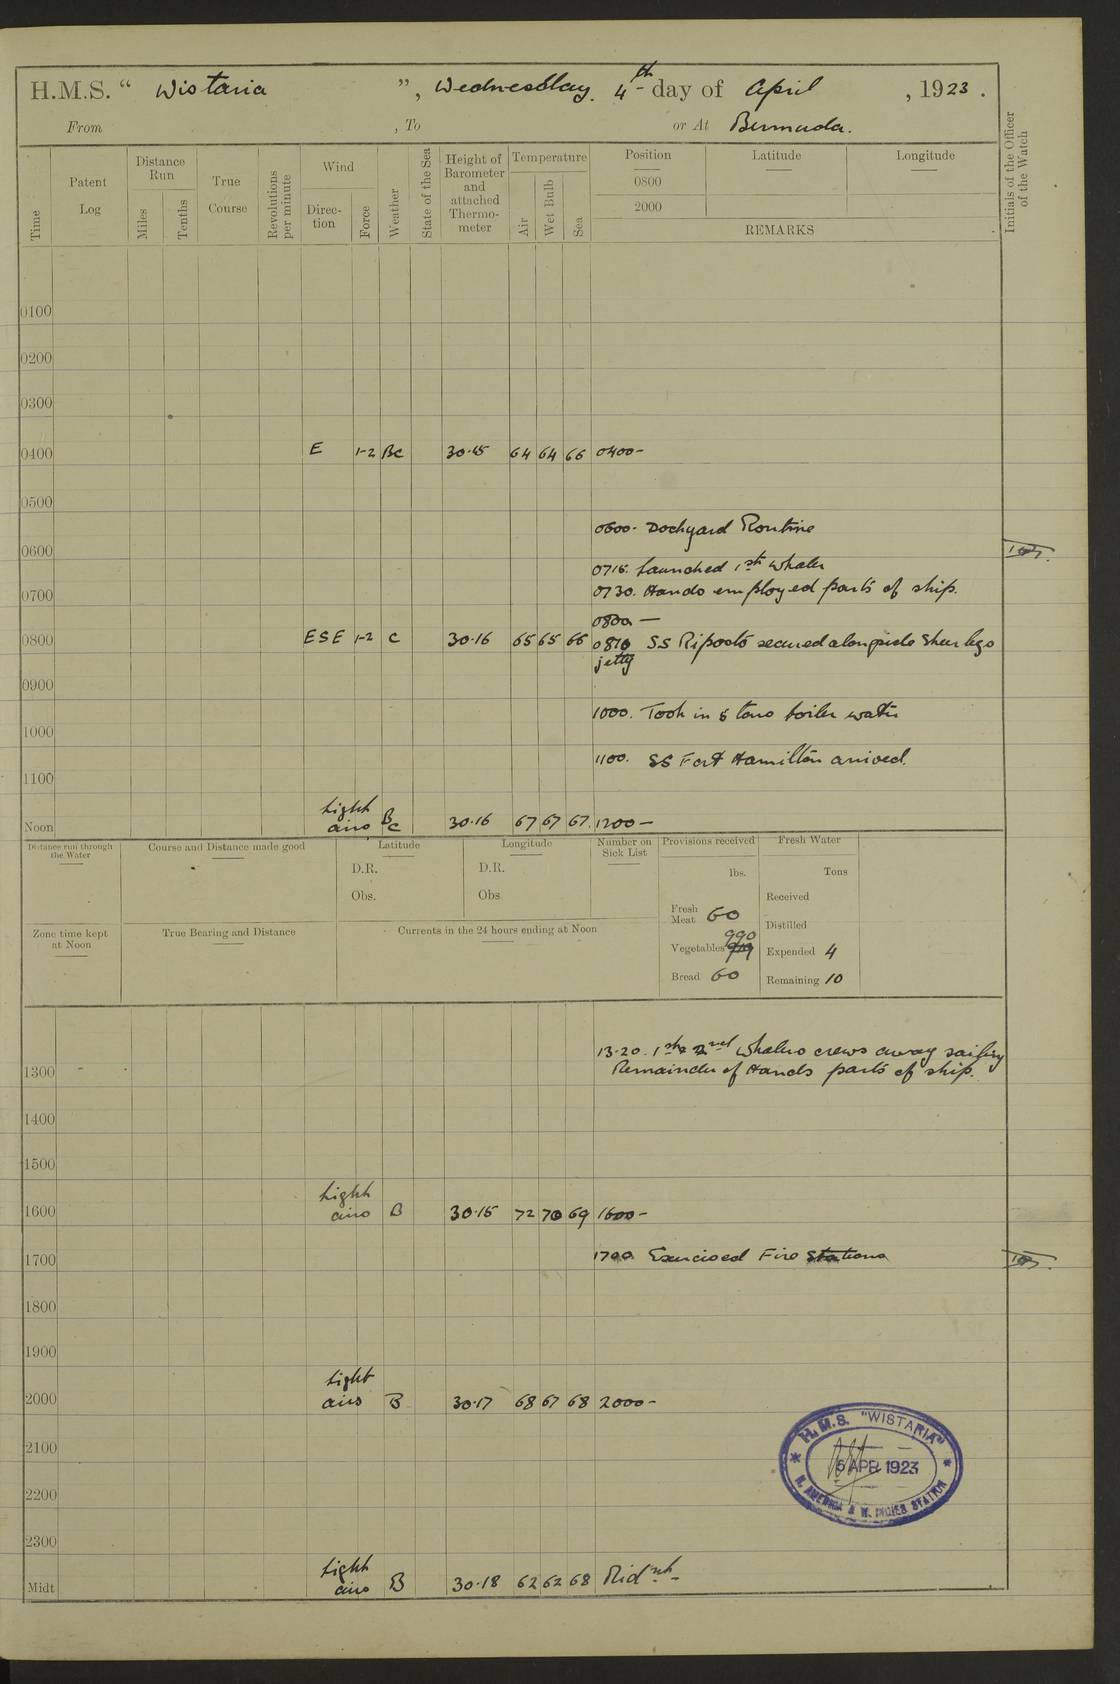 H.M.S. " Wistaria ", Wednesday. 4th day of April , 1923 .
From , To or At Bermuda.
Time
Patent Log
Distance Run
Miles
Tenths
True Course
Revolutions per minute
Wind
Direc-tion
Force
Weather
State of the Sea
Height of Barometer and attached Thermo-meter
Temperature
Air
Wet Bulb
Sea
Position
0800
2000
Latitude
Longitude
REMARKS
Initials of the Officer of the Watch
0100
0200
0300
0400 E 1-2 BC 30.15 64 64 66 0400-
0500
0600- Dockyard Routine
0600
0715. Launched 1st Whaler
0700 0730. Hands employed parts of ship.
0800 -
0800 ESE 1-2 C 30.16 65 65 66 0810 SS Riposto secured alongside Sheer legs
jetty
0900
1000. Took in 5 tons boiler water
1000
1100. SS Fort Hamilton arrived.
1100
Noon Light airs BC 30.16 67 67 67. 1200-
Distance run through the Water
Course and Distance made good
Latitude
D.R.
Obs.
Longitude
D.R.
Obs
Number on Sick List
Provisions received
lbs.
Fresh Meat 60
Vegetables 990
Bread 60
Fresh Water
Tons
Received
Distilled
Expended 4
Remaining 10
Zone time kept at Noon
True Bearing and Distance
Currents in the 24 hours ending at Noon
13.20. 1st & 2nd Whalers crews away sailing
1300 Remainder of Hands parts of ship.
1400
1500
1600 Light airs B 30.15 72 70 69 1600-
1700 1700 Exercised Fire Stations
1800
1900
2000 Light airs B 30.17 68 67 68 2000-
2100
2200
2300
Midt Light airs B 30.18 62 62 68 Midnt-
* H.M.S. "WISTARIA" *
5 APR 1923
N. AMERICA & W. INDIES STATION